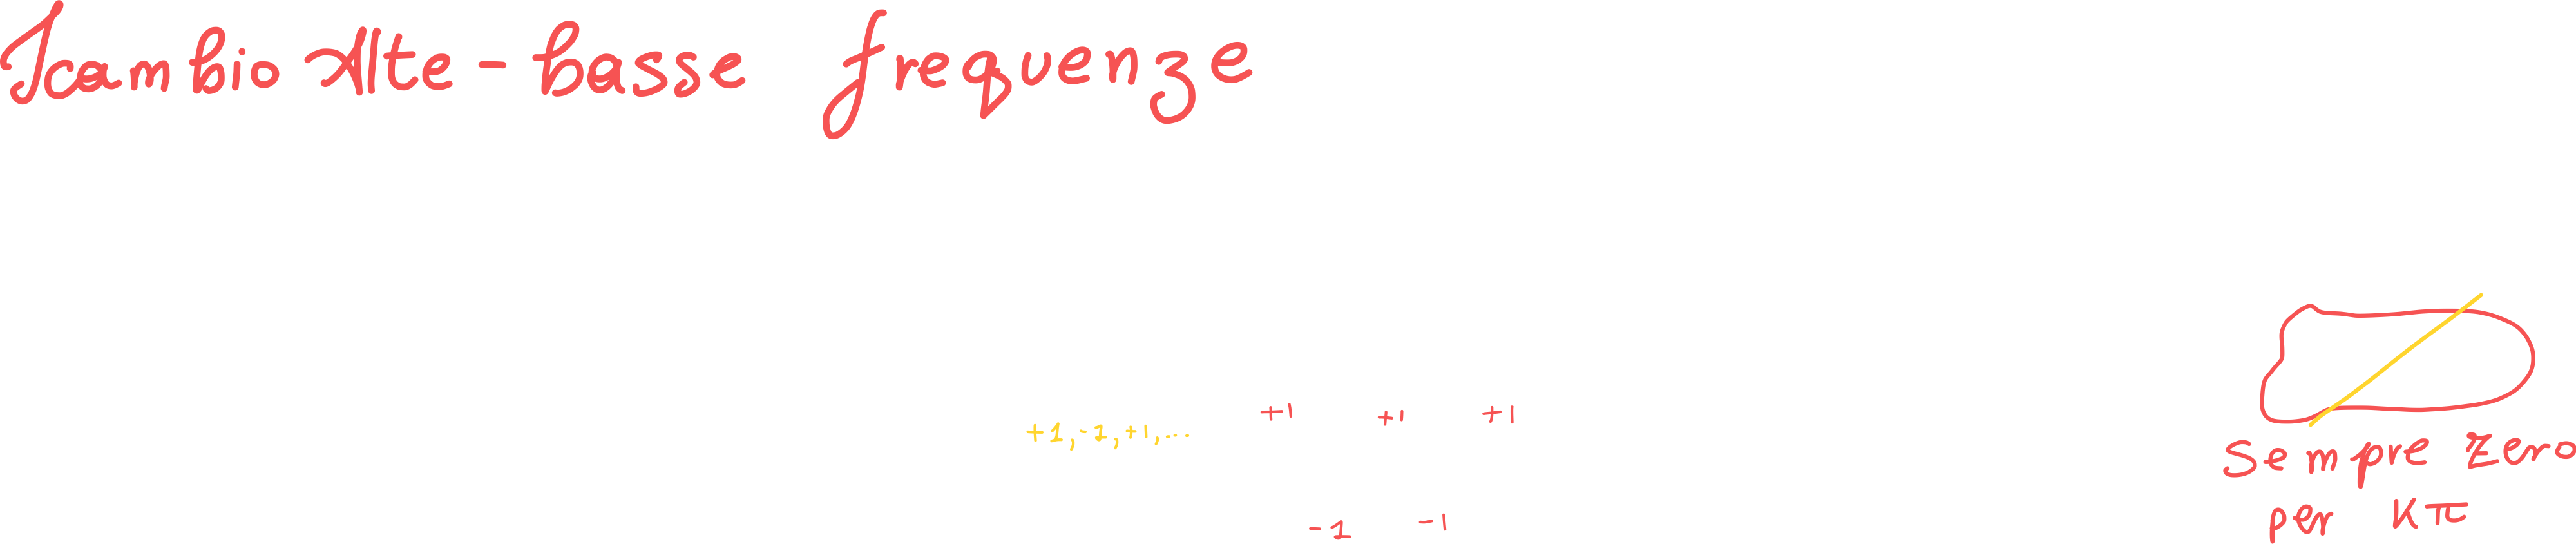 Scambio Alte-basse frequenze
+1 +1 +1
+1,-1,+1,...
-1 -1
Sempre zero
per Kπ